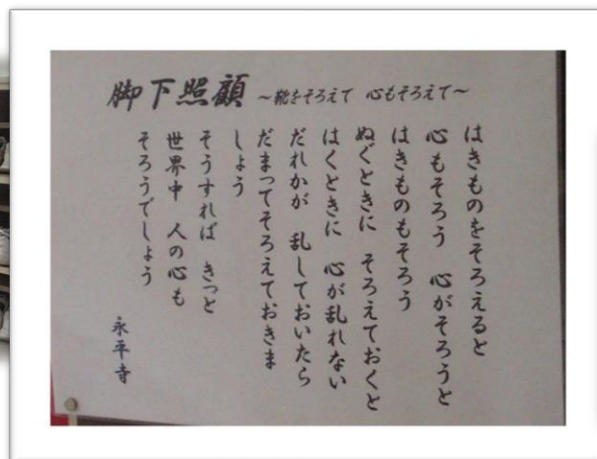 脚下照顧 ~靴をそろえて 心もそろえて~
はきものをそろえると
心もそろう 心がそろうと
はきものもそろう
ぬぐときに そろえておくと
はくときに 心が乱れない
だれかが 乱しておいたら
だまってそろえておきま
しょう
そうすれば きっと
世界中 人の心も
そろうでしょう
永平寺